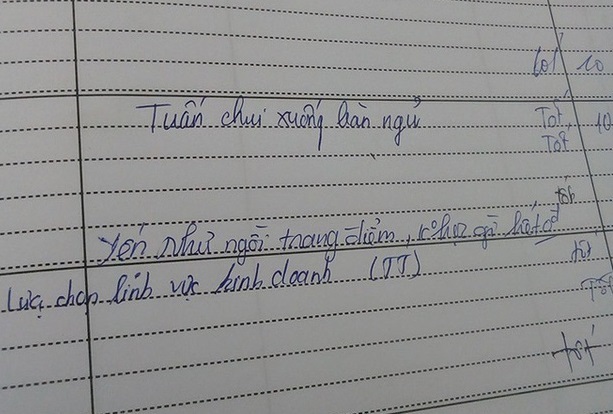 Tốt 10
Tuấn chui xuống bàn ngủ Tốt 10
Tốt
tốt
Yến Như ngồi trang điểm, k học gì hết cả
Lựa chọn lĩnh vực kinh doanh (TT) tốt
Tốt
tốt